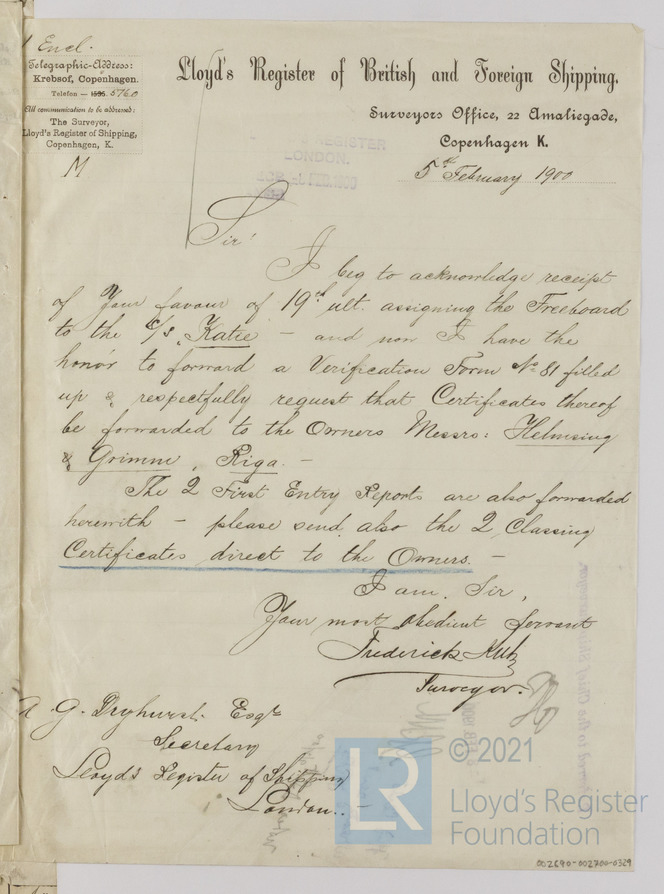 1 Encl.
Telegraphic-Address:
Krebsof, Copenhagen.
Telefon — 1595. 5760
All communication to be addressed:
The Surveyor,
Lloyd's Register of Shipping,
Copenhagen, K.
M
Lloyd's Register of British and Foreign Shipping.
Surveyors Office, 22 Amaliegade,
Copenhagen K.
REGISTER
LONDON.
FEB 1900
5th February 1900
Sir!
I beg to acknowledge receipt
of Your favour of 19th ult. assigning the Freeboard
to the S/S. Katie – and now I have the
honor to forward a Verification Form No 81 filled
up & respectfully request that Certificates thereof
be forwarded to the Owners Messrs: Helmsing
& Grimm, Riga. –
The 2 First Entry Reports are also forwarded
herewith – please send also the 2 Classing
Certificates direct to the Owners. –
I am, Sir,
Your most obedient servant
Frederick
Surveyor.
A. G. Dryhurst Esqre
Secretary
Lloyds Register of Shipping
London. –
LR
© 2021
Lloyd's Register
Foundation
002690-002700-0329